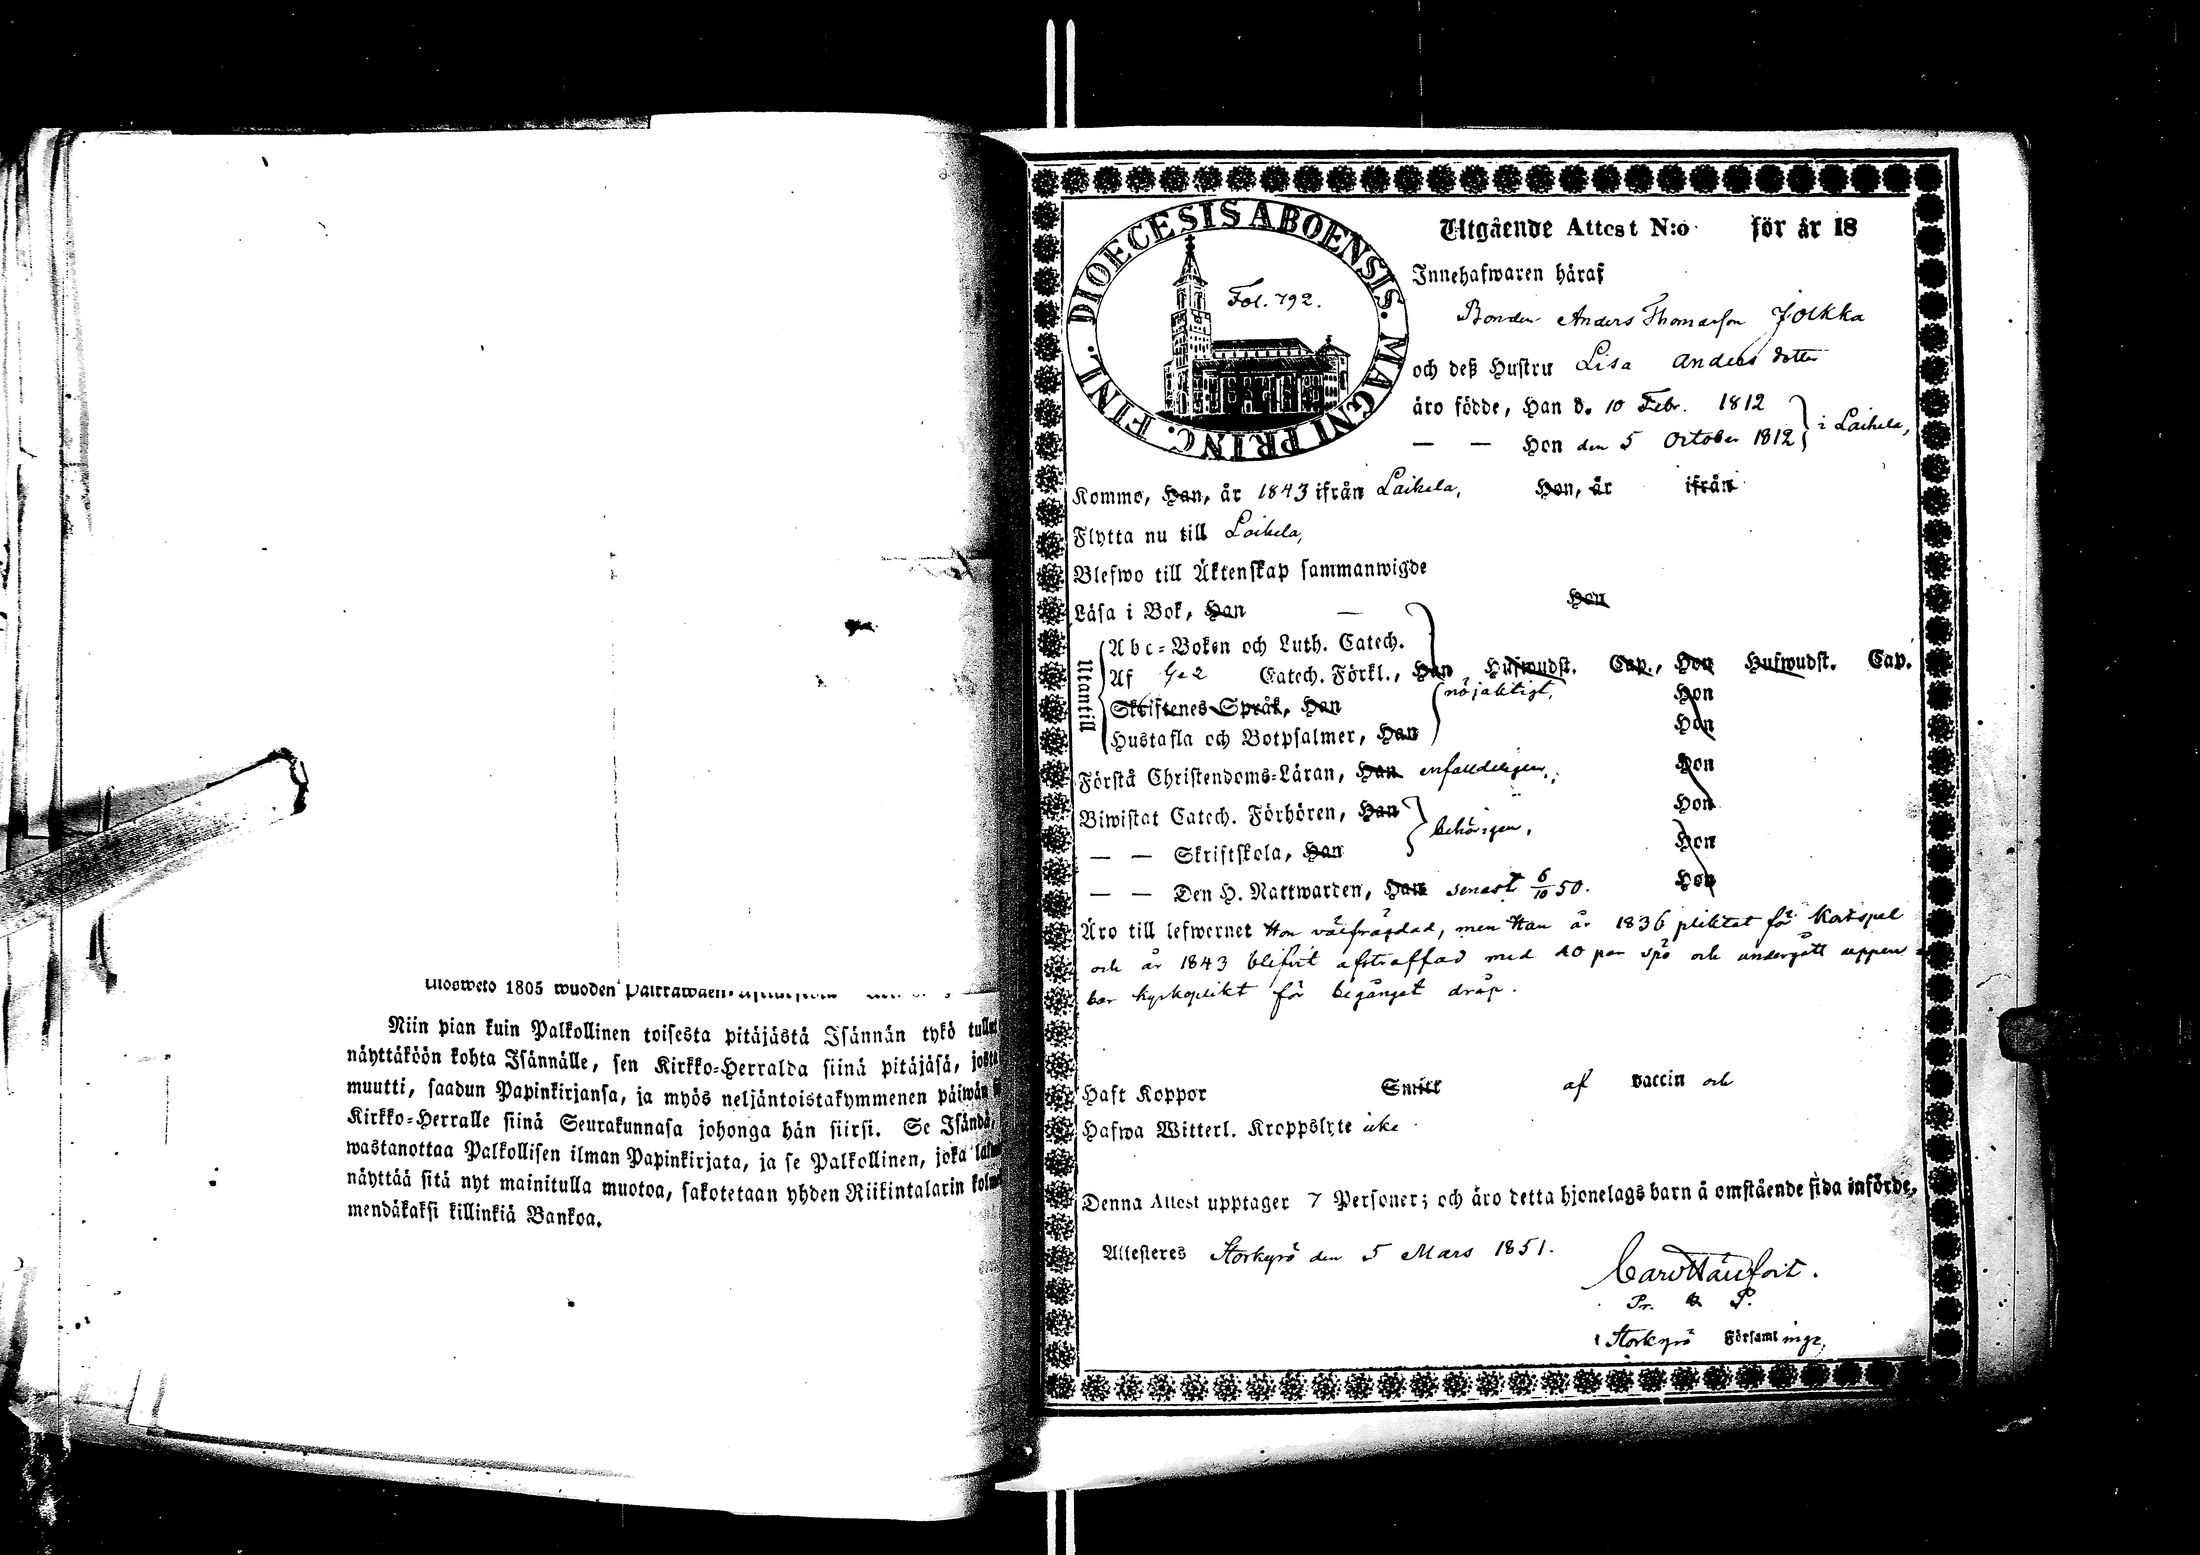 1805 wuoden
Niin pian kuin Palkollinen toisesta pitäjästä Isännän tykö
näyttäköön kohta Isännälle, sen Kirkko-Herralda siinä pitäjäsä,
muutti, saadun Papinkirjansa, ja myös neljäntoistakymmenen päiwän
Kirkko-Herralle siinä Seurakunnasa johonga hän siirsi. Se Isändä,
wastanottaa Palkollisen ilman Papinkirjata, ja se Palkollinen, joka
näyttää sitä nyt mainitulla muotoa, sakotetaan yhden Riikintalarin
mendäkaksi killinkiä Bankoa.
DIOECESIS ABOENSIS. MAGNI PRINC. FINL.
Fol. 792.
Utgående Attest N:o för år 18
Innehafwaren häraf
Bonden Anders Thomasson Jokka
och deß Hustru Lisa Anders dotter
äro födde, Han d. 10 Febr. 1812
— — Hon den 5 October 1812 i Laihela,
Kommo, Han, år 1843 ifrån Laihela, Hon, år ifrån
Flytta nu till Laihela,
Blefwo till Äktenskap sammanwigde
Läsa i Bok, Han — Hon
Utantill
Abc-Boken och Luth. Catech.
Af Catech. Förkl., Han Hufwudst. Cap., Hon Hufwudst. Cap.
nöjaktigt, Hon
Skriftenes Språk, Han
Hustafla och Botpsalmer, Han Hon
Förstå Christendoms-Läran, Han enfaldeligen, Hon
Biwistat Catech. Förhören, Han Hon
behörigen,
— — Skriftskola, Han Hon
— — Den H. Nattwarden, Han senast 6/10 50. Hon
Äro till lefwernet Hon välfrägdad, men Han år 1836 pliktat för Kortspel
och år 1843 blifvit afstraffad med 40 par spö och undergått uppen-
bar kyrkoplikt för begånget dråp.
Haft Koppor Smitt af vaccin och
Hafwa Witterl. Kroppslyte icke
Denna Attest upptager 7 Personer; och äro detta hjonelags barn å omstående sida införde.
Attesteres Storkyrö den 5 Mars 1851.
Pr. P.
i Storkyrö Församlinge,